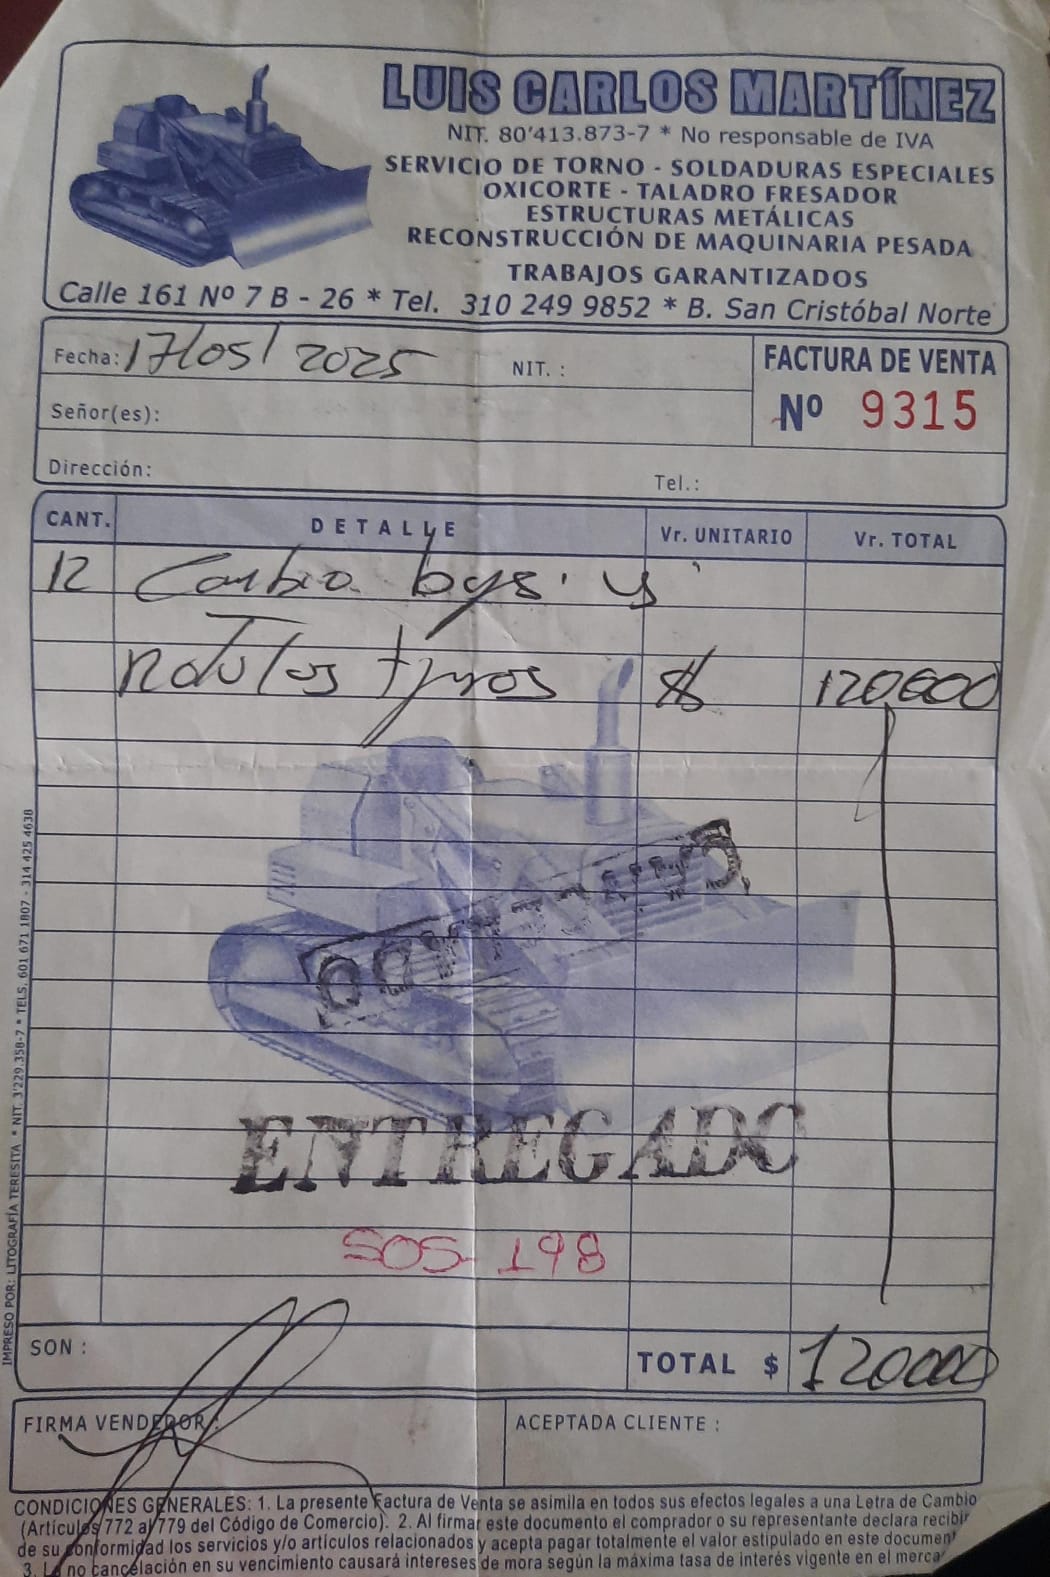 LUIS CARLOS MARTÍNEZ
NIT. 80'413.873-7 * No responsable de IVA
SERVICIO DE TORNO - SOLDADURAS ESPECIALES
OXICORTE - TALADRO FRESADOR
ESTRUCTURAS METÁLICAS
RECONSTRUCCIÓN DE MAQUINARIA PESADA
TRABAJOS GARANTIZADOS
Calle 161 Nº 7 B - 26 * Tel. 310 249 9852 * B. San Cristóbal Norte
Fecha: 17/05/2025 NIT. :
FACTURA DE VENTA
Nº 9315
Señor(es):
Dirección: Tel.:
CANT. DETALLE Vr. UNITARIO Vr. TOTAL
12 Cambio bujs. y
tijeros $ 120.000
ENTREGADO
SOS 198
SON : TOTAL $ 120000
FIRMA VENDEDOR : ACEPTADA CLIENTE :
CONDICIONES GENERALES: 1. La presente Factura de Venta se asimila en todos sus efectos legales a una Letra de Cambio
(Artículos 772 al 779 del Código de Comercio). 2. Al firmar este documento el comprador o su representante declara recibir
de su conformidad los servicios y/o artículos relacionados y acepta pagar totalmente el valor estipulado en este documen
3. La no cancelación en su vencimiento causará intereses de mora según la máxima tasa de interés vigente en el merca
IMPRESO POR: LITOGRAFÍA TERESITA * NIT. 3'229.358-7 * TELS. 601 671 1807 - 314 425 4638